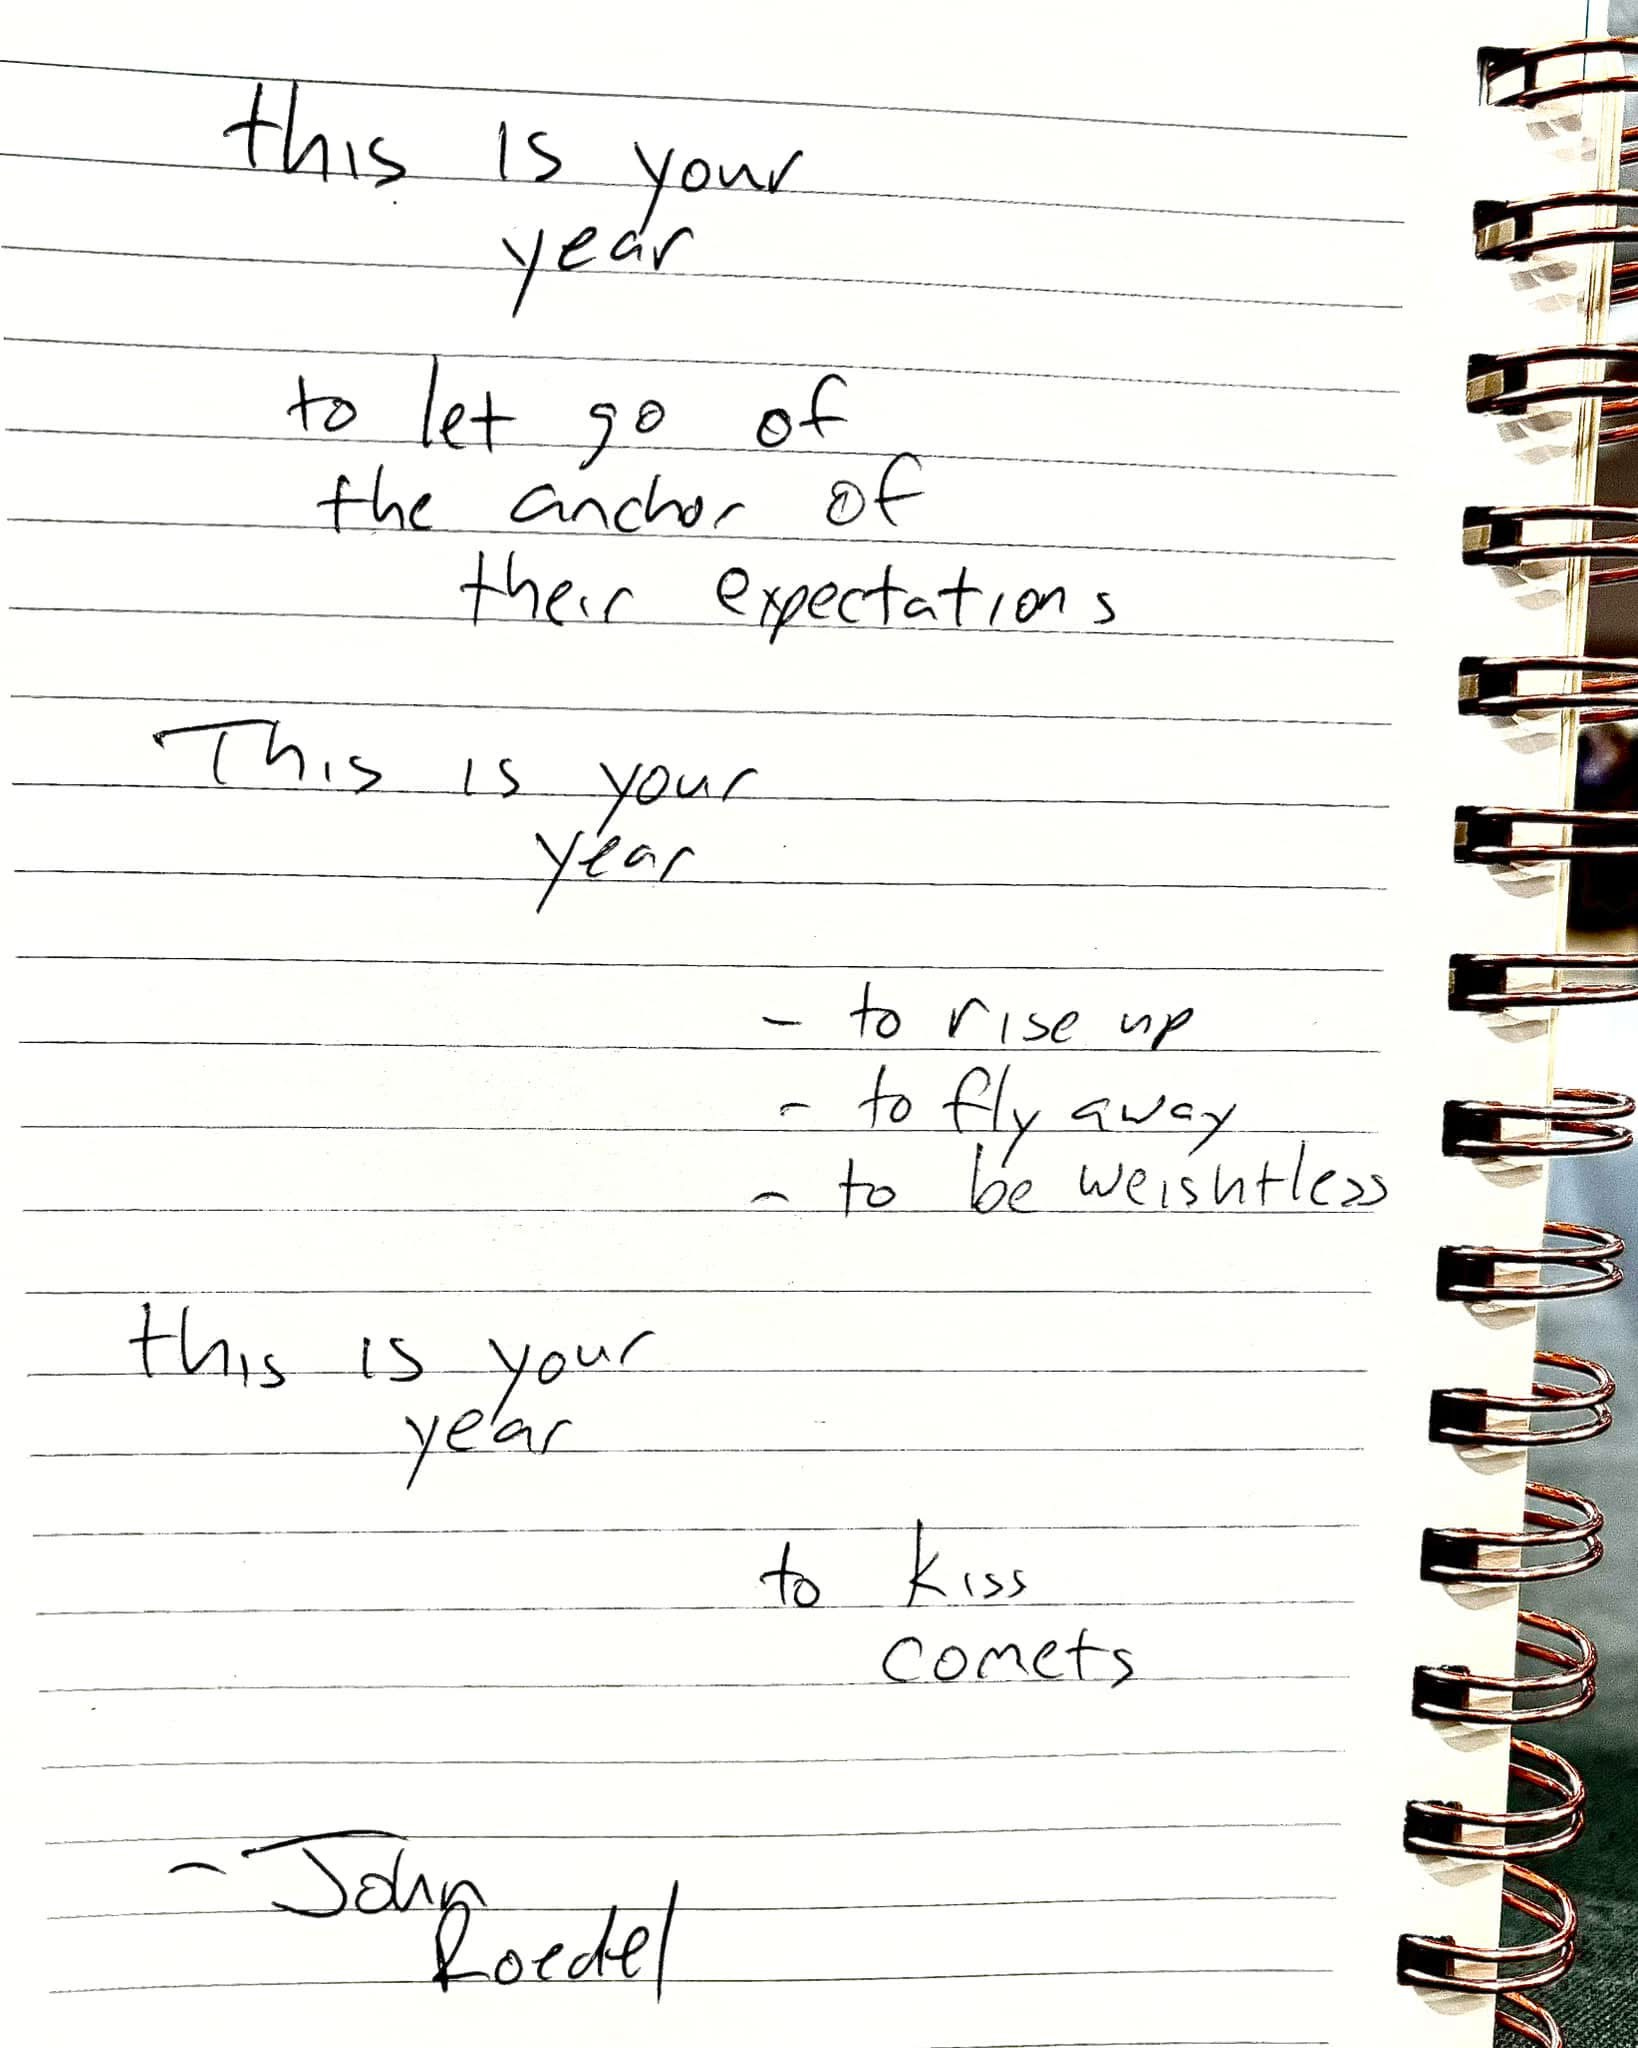 this is your
year
to let go of
the anchor of
their expectations
This is your
year
- to rise up
- to fly away
- to be weightless
this is your
year
to kiss
comets
- John
Roedel